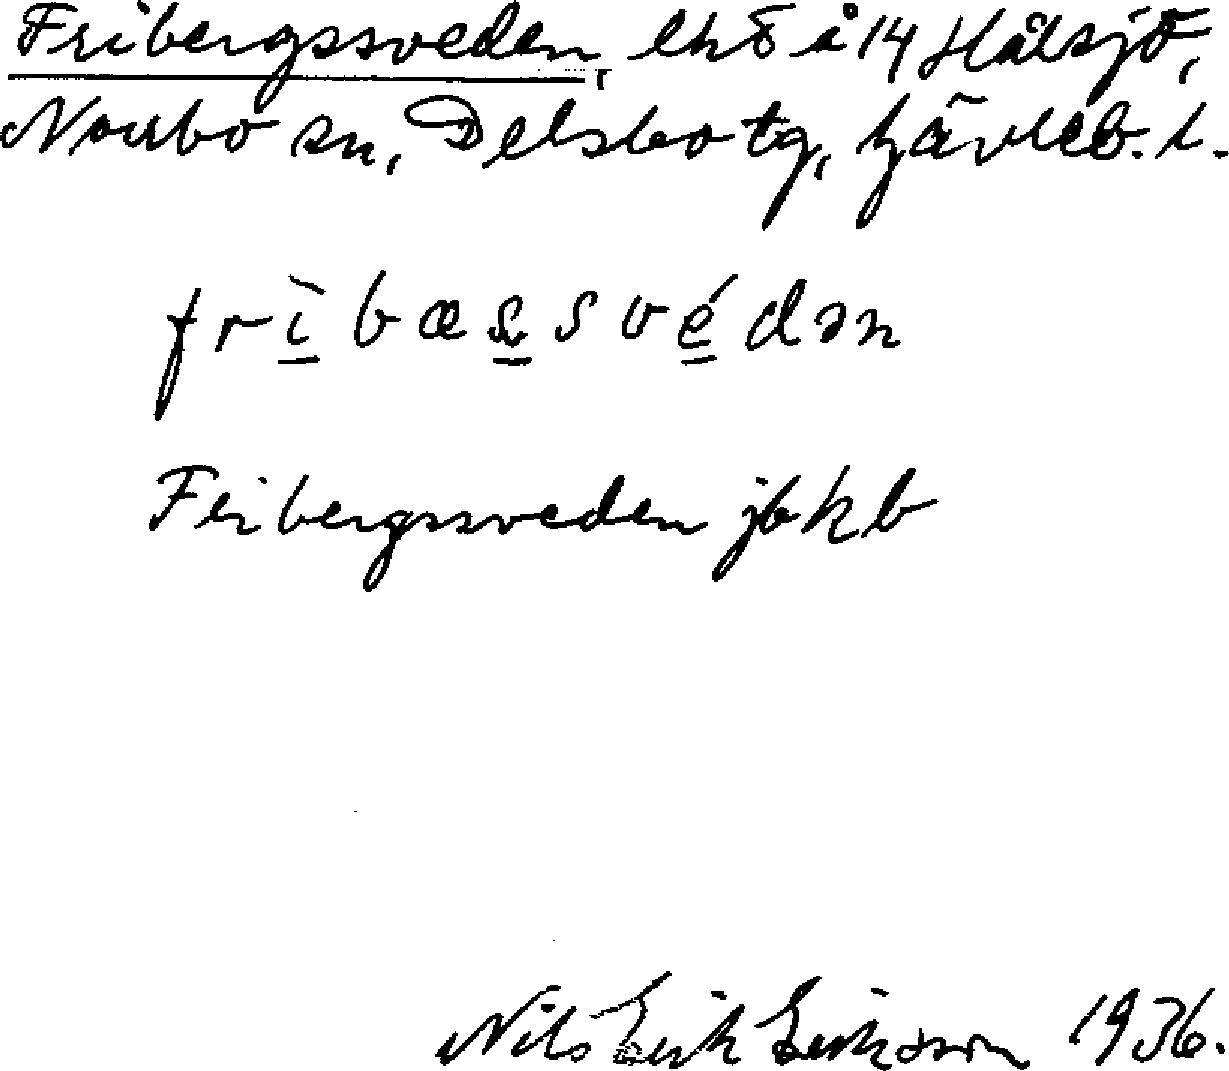 Fribergssveden, lht å 14 Hålsjö,
Norrbo sn, Delsbo tg, Gävleb. l.
frìbæṣsvédən
Fribergssveden jbkb
Nils Erik Eriksson 1936.